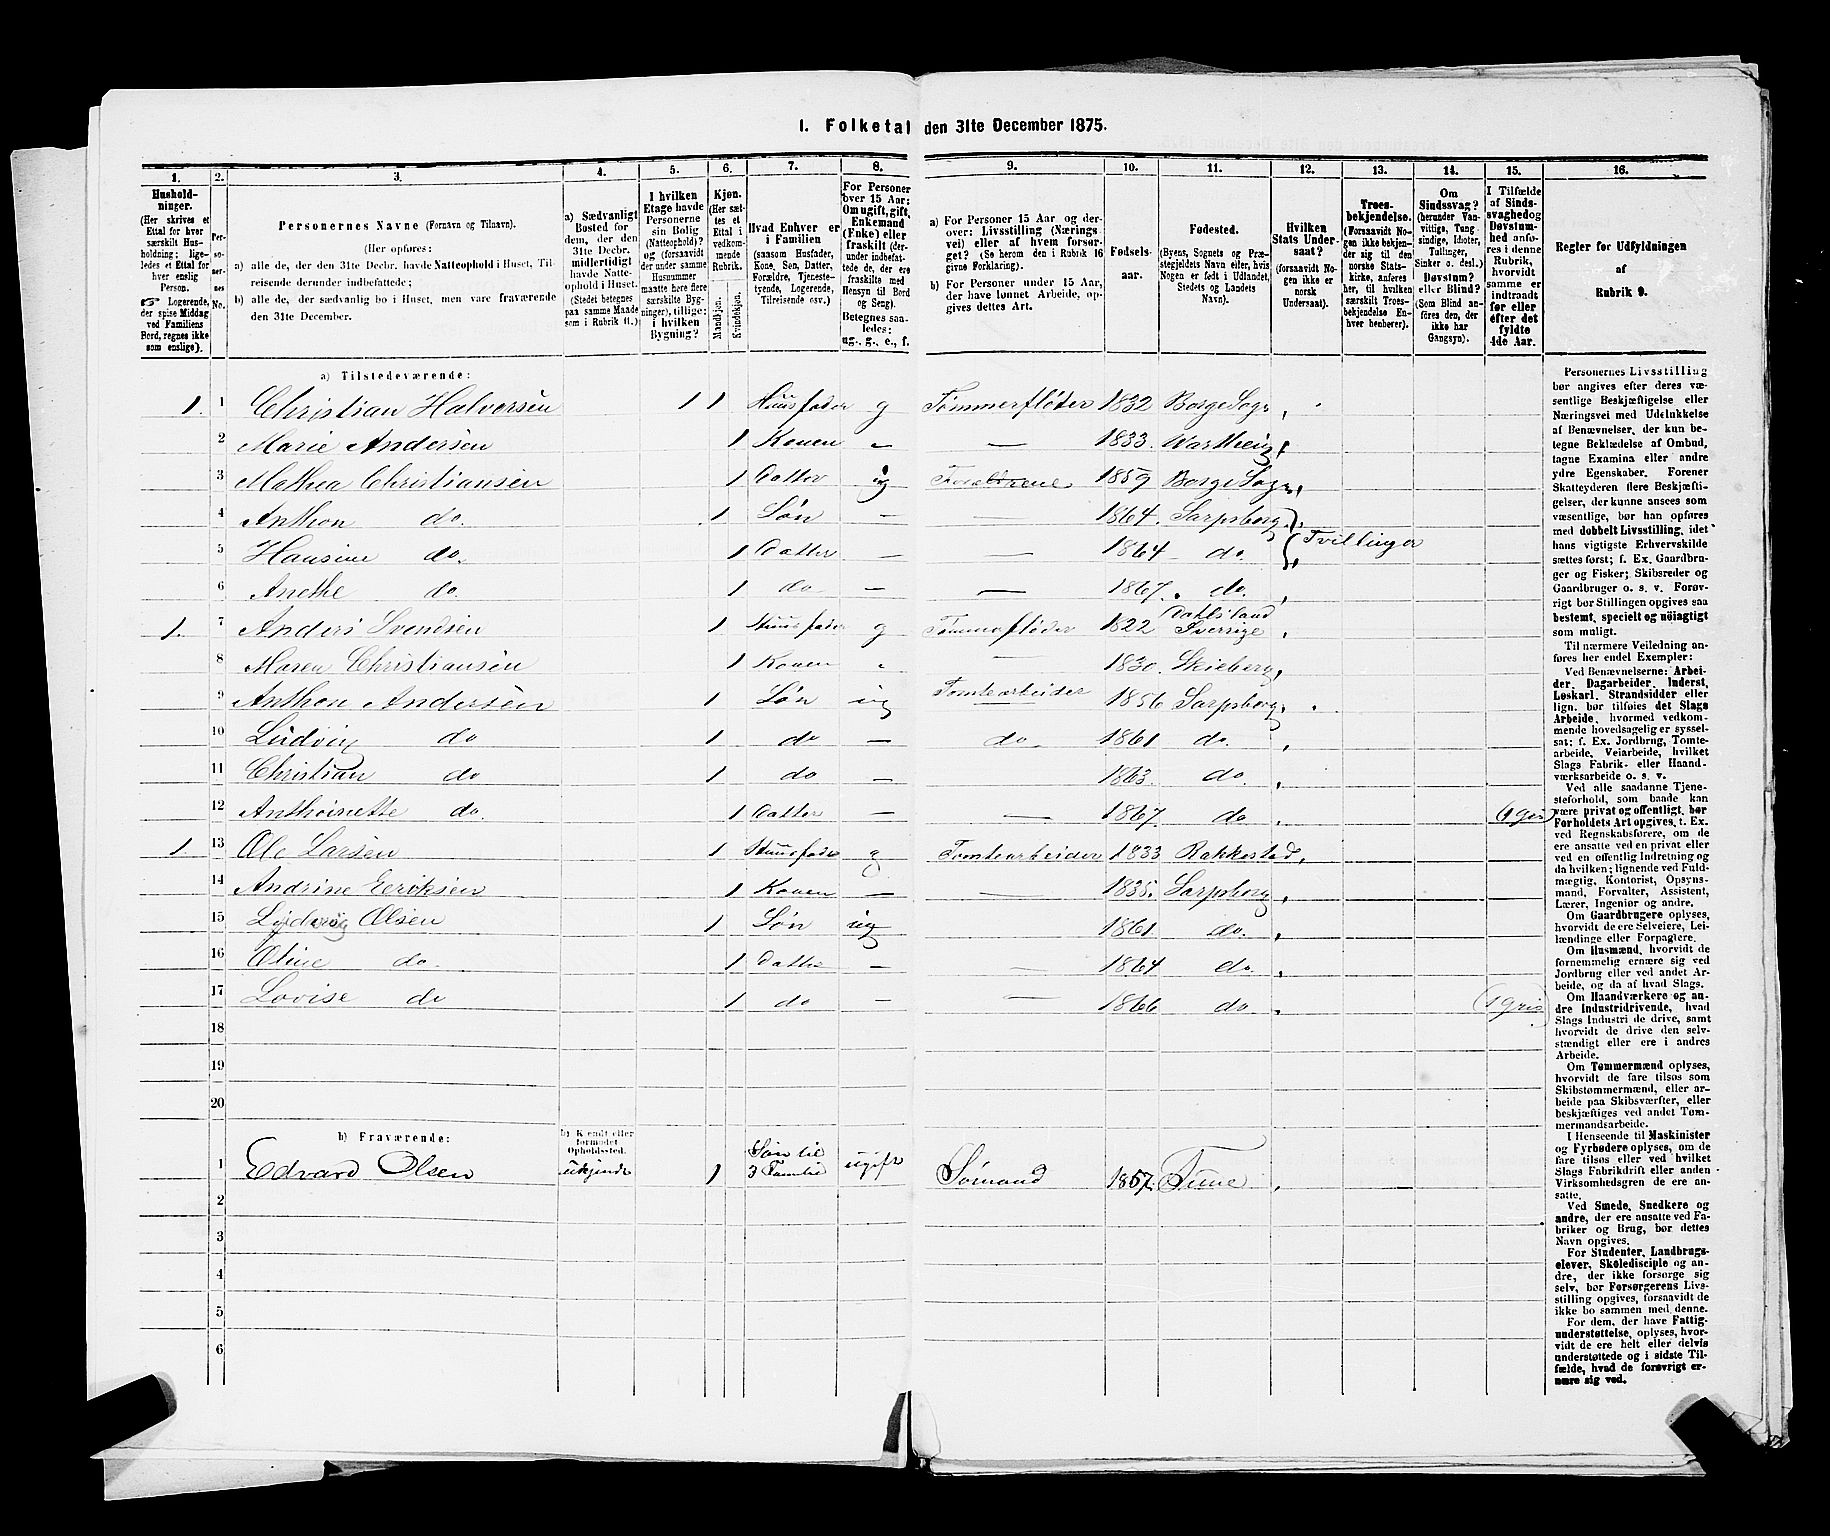 I. Folketal den 31te December 1875.
1. 2. 3. 4. 5. 6. 7. 8. 9. 10. 11. 12. 13. 14. 15. 16.
Husholdninger.
(Her skrives et
Ettal for hver
særskilt Husholdning;
ligeledes et Ettal for
hver enslig
Person.
☞ Logerende,
der spise Middag
ved Familiens
Bord, regnes ikke
som enslige).
Personernes No.
Personernes Navne (Fornavn og Tilnavn).
(Her opføres:
a) alle de, der den 31te Decbr. havde Natteophold i Huset, Tilreisende derunder indbefattede;
b) alle de, der sædvanlig bo i Huset, men vare fraværende
den 31te December.
a) Sædvanligt
Bosted for
dem, der den
31te Decbr.
midlertidigt
havde Natteophold i Huset.
(Stedet betegnes
paa samme Maade
som i Rubrik 11.)
I hvilken
Etage havde
Personerne
sin Bolig
(Natteophold)?
og (forsaavidt
der under samme
Husnummer
maatte høre flere
særskilte Bygninger), tillige:
i hvilken
Bygning?
Kjøn.
(Her sættes et
Ettal i
vedkommende
Rubrik.
Mandkjøn.
Kvindekjøn.
Hvad Enhver er
i Familien
(saasom Husfader,
Kone, Søn, Datter,
Forældre, Tjenestetyende, Logerende,
Tilreisende osv.)
For Personer
over 15 Aar:
Om ugift, gift,
Enkemand
(Enke) eller
fraskilt (derunder indbefattede de, der ere
fraskilte med
Hensyn til Bord
og Seng).
Betegnes saaledes:
ug., g., e., f.
a) For Personer 15 Aar og derover: Livsstilling (Næringsvei) eller af hvem forsørget? (Se herom den i Rubrik 16
givne Forklaring).
b) For Personer under 15 Aar,
der have lønnet Arbeide, opgives dettes Art.
Fødselsaar.
Fødested.
(Byens, Sognets og Præstegjeldets Navn eller, hvis
Nogen er født i Udlandet,
Stedets og Landets
Navn).
Hvilken
Stats Undersaat?
(forsaavidt Nogen ikke er
norsk
Undersaat).
Troesbekjendelse.
(Forsaavidt Nogen ikke bekjender sig til den
norske Statskirke, anføres
her, til hvilken
særskilt Troesbekjendelse Enhver henhører).
Om
Sindssvag?
(herunder Vanvittige, Tungsindige, Idioter,
Tullinger,
Sinker o. desl.)
Døvstum?
eller Blind?
(Som Blind anføres den, der
ikke har
Gangsyn).
I Tilfælde
af Sindssvaghed og
Døvstumhed anføres i denne
Rubrik,
hvorvidt
samme er
indtraadt
før eller
efter det
fyldte
4de Aar.
Regler for Udfyldningen
af
Rubrik 9.
a) Tilstedeværende:
1. 1 Christian Halvorsen 1 1 Huusfader g Tømmerfløder 1832 Borge Sogn
2 Marie Andersen 1 Konen — — 1833. Warteig
3 Mathea Christiansen 1 Datter ug Forældrene 1859 Borge Sogn
4 Anthon do. 1 Søn — — 1864. Sarpsborg
5 Hansine do. 1 Datter — — 1864 do. } Tvillinger
6 Anethe do. 1 do — — 1867. do.
1. 7 Anders Svendsen 1 Huusfader g Tømmerfløder 1822 Dahlsland Sverrige
8 Maren Christiansen 1 Konen — 1830. Skieberg
9 Anthon Andersen 1 Søn ug Tomtearbeider 1856 Sarpsborg
10 Ludvig do 1 do — do 1861 do.
11 Christian do 1 do — 1863. do.
12 Anthoinette do. 1 Datter — — 1867. do. (1 gris)
1. 13 Ole Larsen 1 Huusfader g Tomtearbeider 1833 Rakkestad
14 Andrine Eeriksen 1 Konen — — 1835. Sarpsborg
15 Olsen 1 Søn ug 1861 do.
16 Oline do. 1 Datter — — 1864 do.
17 Lovise do 1 do — — 1866 do. (1 gris)
18
19
20
b) Fraværende:
b) Kendt eller
formodet
Opholdssted.
1 Edvard Olsen ukjendt 1 Søn til
3 Familie ugift Sømand 1857. Tune
2
3
4
5
6
Personernes Livsstilling
bør angives efter deres væsentlige Beskjæftigelse eller
Næringsvei med Udelukkelse
af Benævnelser, der kun betegne Beklædelse af Ombud,
tagne Examina eller andre
ydre Egenskaber. Forener
Skatteyderen flere Beskjæftigelser, der kunne ansees som
væsentlige, bør han opføres
med dobbelt Livsstilling, idet
hans vigtigste Erhvervskilde
sættes først; f. Ex. Gaardbruger og Fisker; Skibsreder og
Gaardbruger o. s. v. Forøvrigt bør Stillingen opgives saa
bestemt, specielt og nöiagtigt
som muligt.
Til nærmere Veiledning anføres her endel Exempler:
Ved Benævnelserne: Arbeider, Dagarbeider, Inderst,
Løskarl, Strandsidder eller
lign. bør tilføies det Slags
Arbeide, hvormed vedkommende hovedsagelig er sysselsat; f. Ex. Jordbrug, Tomtearbeide, Veiarbeide, hvilket
Slags Fabrik- eller Haandværksarbeide o. s. v.
Ved alle saadanne Tjenesteforhold, som baade kan
være privat og offentligt, bør
Forholdets Art opgives, t. Ex.
ved Regnskabsførere, om de
ere ansatte ved en privat eller
ved en offentlig Indretning og
da hvilken; lignende ved Fuldmægtig, Kontorist, Opsynsmand, Forvalter, Assistent,
Lærer, Ingeniør og andre.
Om Gaardbrugere oplyses,
hvorvidt de ere Selveiere, Leilændinge eller Forpagtere.
Om Husmænd, hvorvidt de
fornemmelig ernære sig ved
Jordbrug eller ved andet Arbeide, og da af hvad Slags.
Om Haandværkere og andre Industridrivende, hvad
Slags Industri de drive, samt
hvorvidt de drive den selvstændigt eller ere i andres
Arbeide.
Om Tømmermænd oplyses,
hvorvidt de fare tilsøs som
Skibstømmermænd, eller arbeide paa Skibsværfter, eller
beskjæftiges ved andet Tømmermandsarbeide.
I Henseende til Maskinister
og Fyrbødere oplyses, om de
fare tilsøs eller ved hvilket
Slags Fabrikdrift eller anden
Virksomhedsgren de ere ansatte.
Ved Smede, Snedkere og
andre, der ere ansatte ved Fabriker og Brug, bør dettes
Navn opgives.
For Studenter, Landbrugselever, Skoledisciple og andre, der ikke forsørge sig
selv, bør Forsørgerens Livsstilling opgives, forsaavidt de
ikke bo sammen med denne.
For dem, der have Fattigunderstøttelse, oplyses, hvorvidt de ere helt eller delvis
understøttede og i sidste Tilfælde, hvad de forøvrigt ernære sig ved.